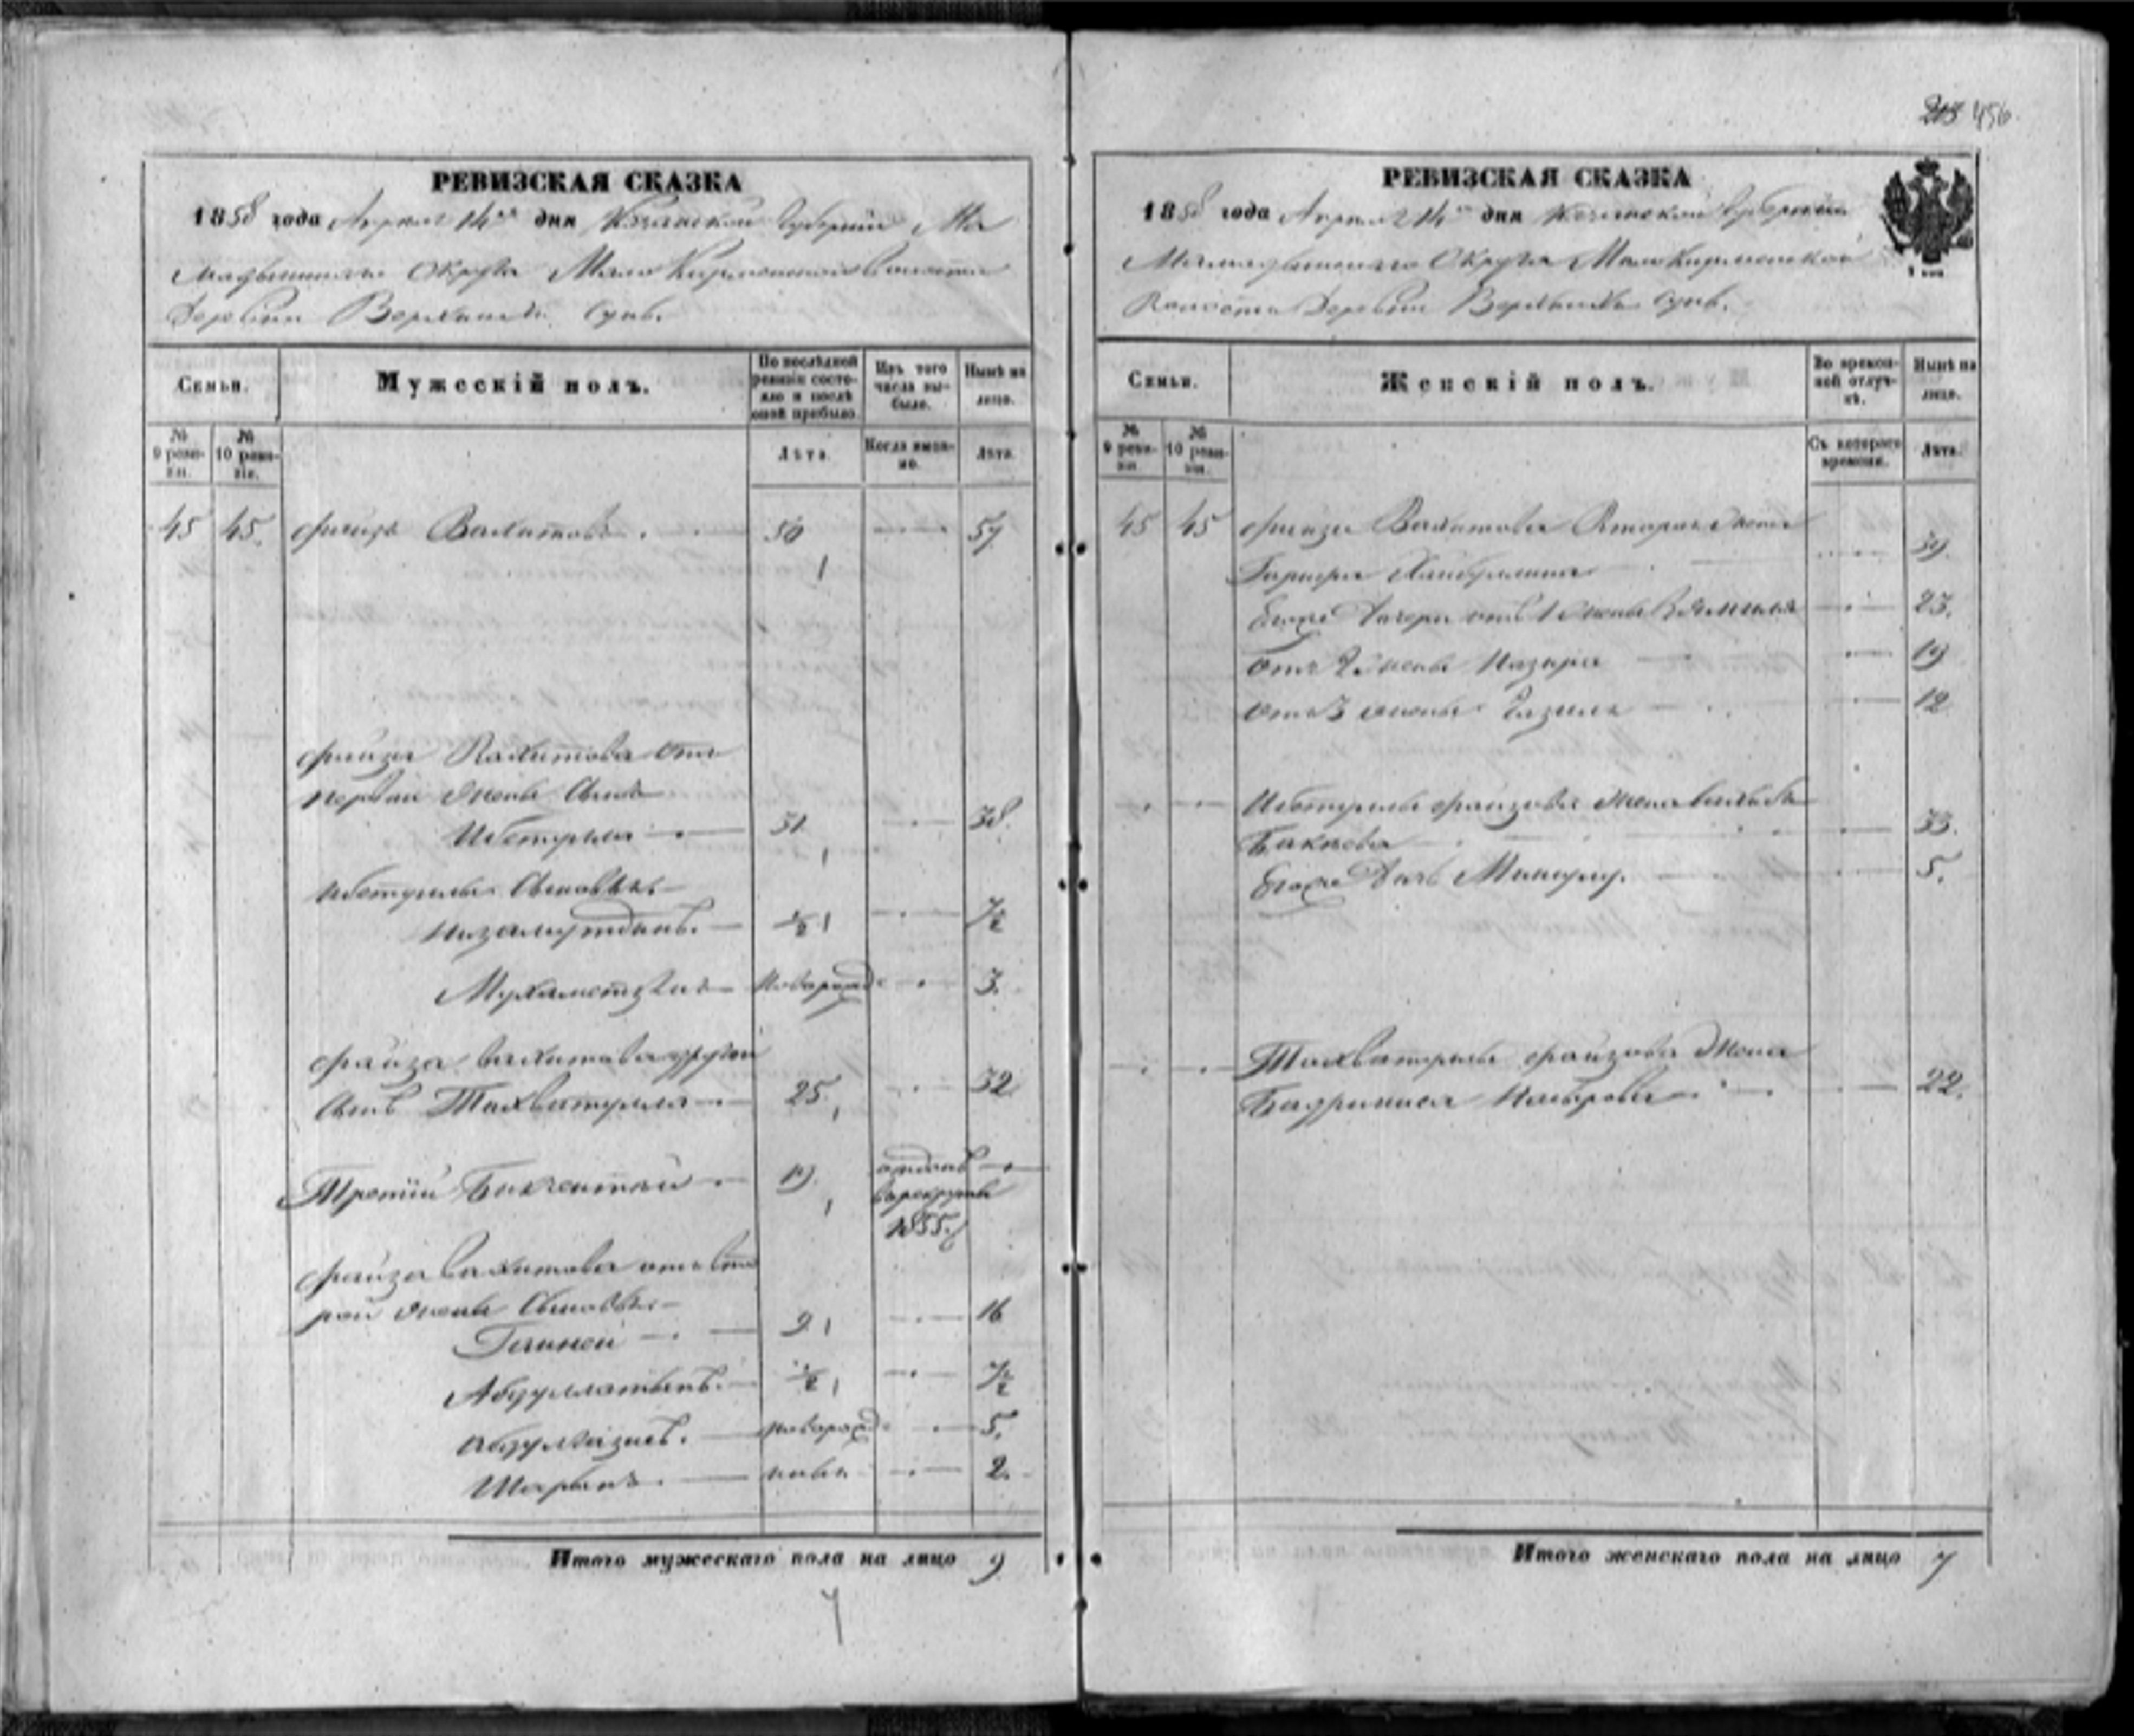 213 456.
РЕВИЗСКАЯ СКАЗКА
1858 года Апреля 14го дня Казанской Губернiи Ма
мадышскаго Округа Мало Кирменской волости
Деревни Верхнихъ Сунь.
Семьи.
Мужескiй полъ.
По послѣдней ревизiи состояло и послѣ оной прибыло.
Изъ того числа выбыло.
Нынѣ на лицо.
№ 9 ревизiи.
№ 10 ревизiи.
Лѣта.
Когда именно.
Лѣта.
45 45. Файзъ Вахитовъ. 50 57
1
Файза Вахитова отъ
первой жены сынъ
Ибетулла 31 38.
1
Ибетуллы сыновья
Низамутдинъ. ½ 1 7½
Мухаметзянъ новорожд 3.
Файза Вахитова другой
сынъ Тохватулла 25 32
1
Третiй Бикчентей 19. отданъ
1 в рекруты
1855.
Файза Вахитова отъ вто
рой жены сыновья
Гинией 9 1 16
Абдуллатыпъ. ½ 1 7½
Абдулвазизъ. новорожд 5.
Шарыпъ. новор. 2.
Итого мужескаго пола на лицо 9
7
РЕВИЗСКАЯ СКАЗКА
1858 года Апреля 14го дня Казанской Губернiи
Мамадышскаго Округа Мало Кирменской
Волости Деревни Верхнихъ Сунь.
Семьи.
Женскiй полъ.
Во временной отлучкѣ.
Нынѣ на лицо.
№ 9 ревизiи.
№ 10 ревизiи.
Съ котораго времени.
Лѣта.
45 45 Файза Вахитова Вторая жена
Гарифа Хайбуллина 39.
Егоже Дочери отъ 1 жены 23.
Отъ 2 жены Назира 19
отъ 3 жены 12
Ибетуллы Файзова жена
Бикѣева 33.
Егоже Дочь 5.
Тохватуллы Файзова Жена
Бадриниса 22.
Итого женскаго пола на лицо 7